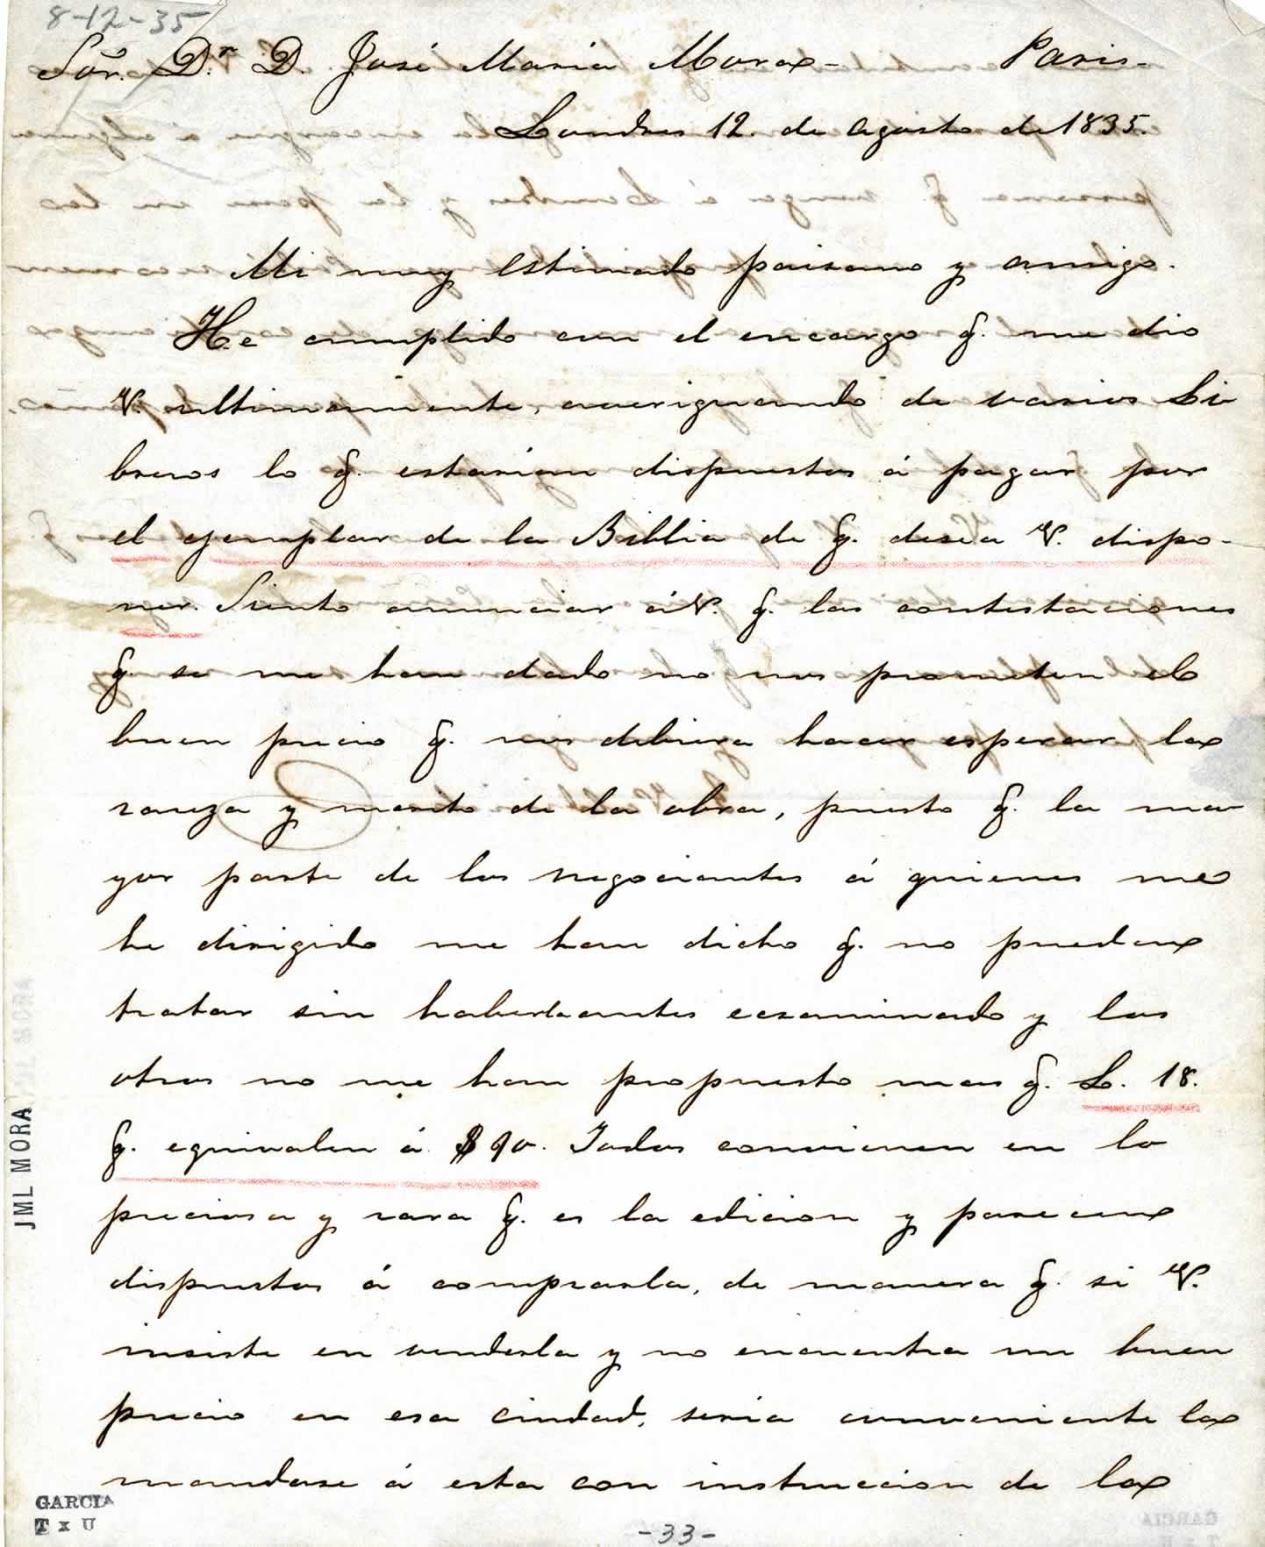 8-12-35
Sor. Dr. D. José Maria Mora Paris.
Londres 12. de Agosto de 1835.
Mi muy Estimado paisano y amigo.
He cumplido con el encargo q. me dio
V. ultimamente, averiguando de varios Li
breros lo q. estarian dispuestos á pagar por
el ejemplar de la Biblia de q. desea V. dispo-
ner. Siento anunciar á V. q. las contestaciones
q. se me han dado no nos prometen el
buen precio q. nos debiera hacer esperar la
rareza y merito de la obra, puesto q. la ma
yor parte de los negociantes á quienes me
he dirigido me han dicho q. no pueden
tratar sin haberla antes ecsaminado y los
otros no me han propuesto mas q. L. 18.
q. equivalen á $ 90. Todos convienen en lo
preciosa y rara q. es la edicion y parecen
dispuestos á comprarla, de manera q. si V.
insiste en venderla y no encuentra un buen
precio en esa ciudad, seria conveniente la
mandase á esta con instruccion de la
JML MORA
GARCIA
T x U
-33-